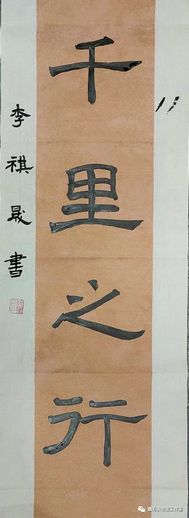 千里之行
李祺晟書